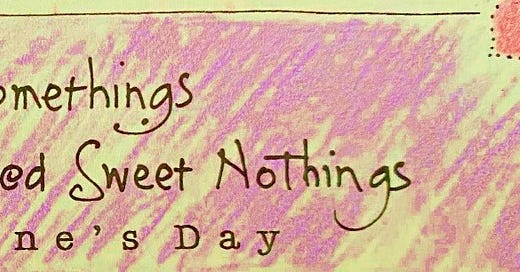 omethings
ed Sweet Nothings
ne's Day